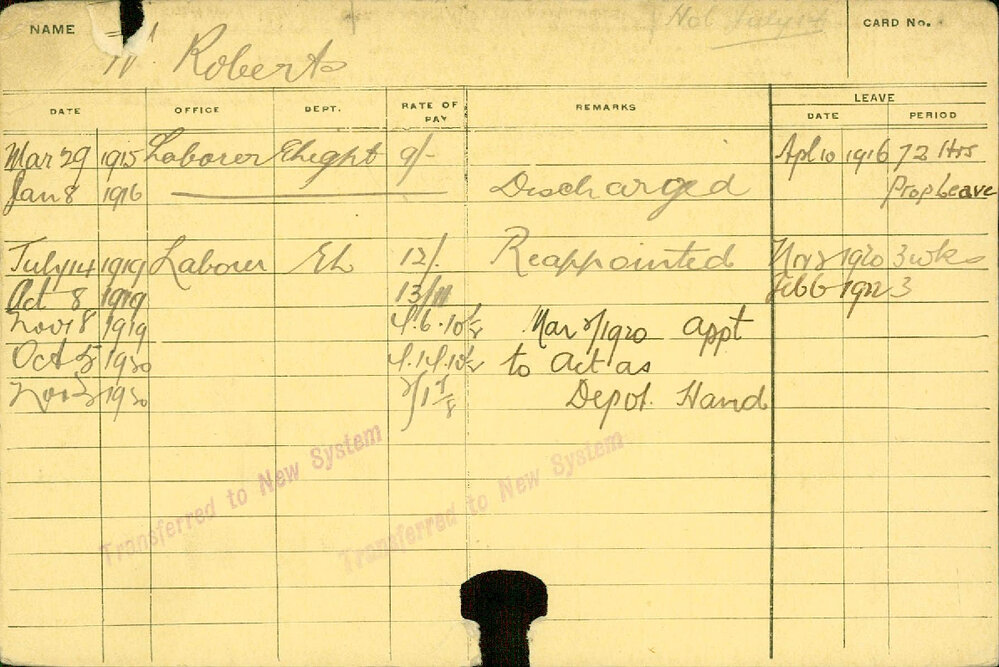 Hol July 14
NAME
W Roberts
CARD No.
DATE OFFICE DEPT. RATE OF PAY REMARKS LEAVE
DATE PERIOD
Mar 29 1915 Laborer 9/- Apl 10 1916 72 Hrs
Jan 8 1916 Discharged Prop Leave
July 14 1919 Labourer EL 12/. Reappointed 1920 3 wks
Oct 8 1919 13/11 Feb 6 1922 3
Nov 18 1919 4.6.10½ Mar 1920 Appt
Oct 5 1920 4.14.10½ to Act as
Nov 1920 Depot Hand
Transferred to New System
Transferred to New System